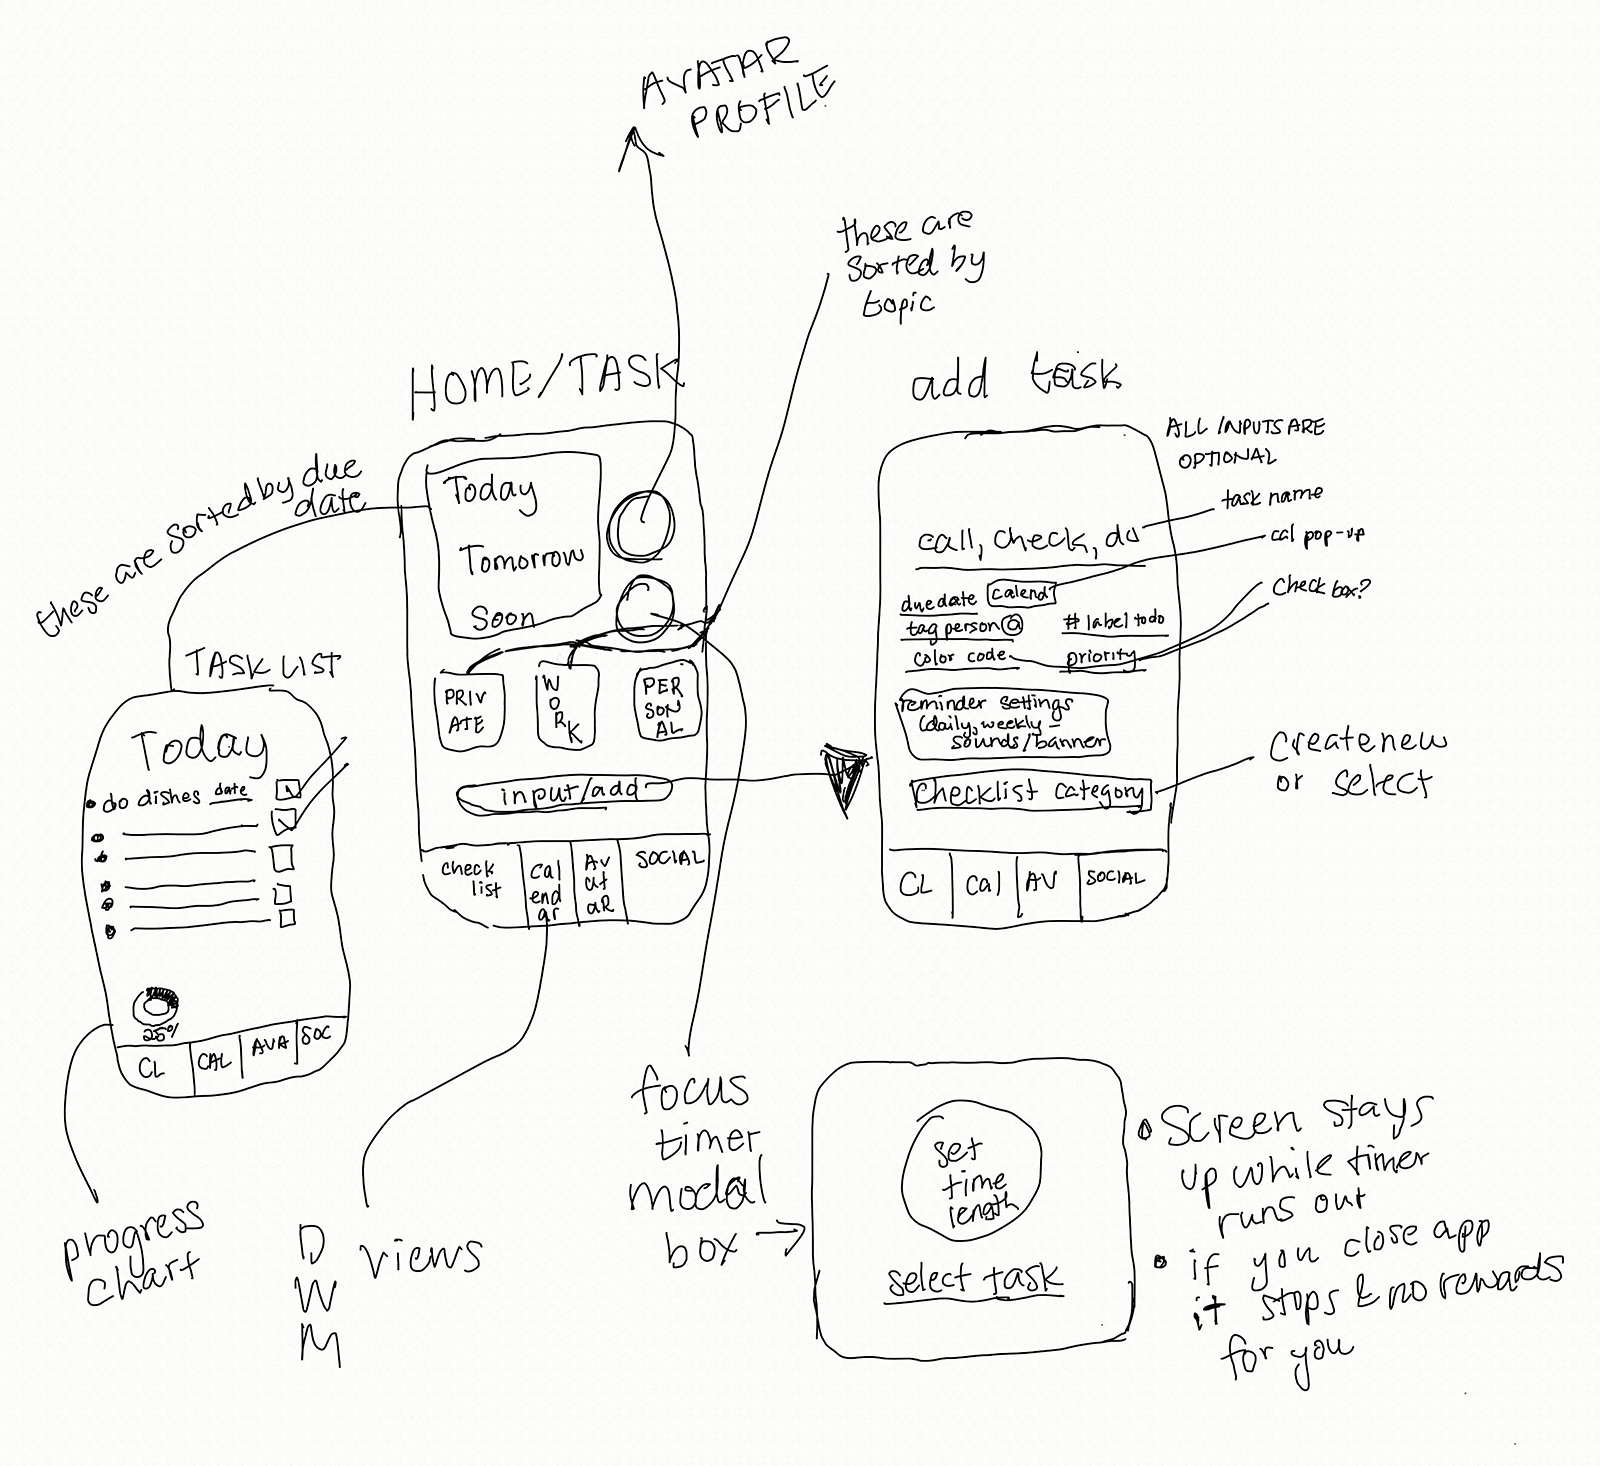 AVATAR
PROFILE
these are
sorted by
topic
HOME/TASK
Today
Tomorrow
Soon
PRIV
ATE
W
O
R
K
PER
SON
AL
input/add
check
list
Cal
end
ar
Av
at
aR
SOCIAL
these are sorted by due
date
TASK LIST
Today
do dishes date
25%
CL
CAL
AVA
SOC
progress
chart
D
W
M
views
add task
ALL INPUTS ARE
OPTIONAL
task name
call, check, do
cal pop-up
due date calend
check box?
tag person @
# label todo
color code
priority
reminder settings
(daily, weekly –
sounds/banner
checklist category
create new
or select
CL
Cal
AV
SOCIAL
focus
timer
modal
box
set
time
length
select task
• Screen stays
up while timer
runs out
• if you close app
it stops & no rewards
for you